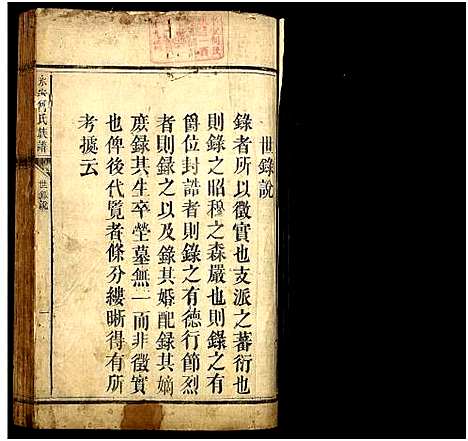 世錄說
錄者所以徵實也支派之蕃衍也
則錄之昭穆之森嚴也則錄之有
爵位封誥者則錄之有德行節烈
者則錄之以及錄其婚配錄其嫡
庶錄其生卒塋墓無一而非徵實
也俾後代覧者條分縷晰得有所
考㨿云
氏族譜
世錄說
一